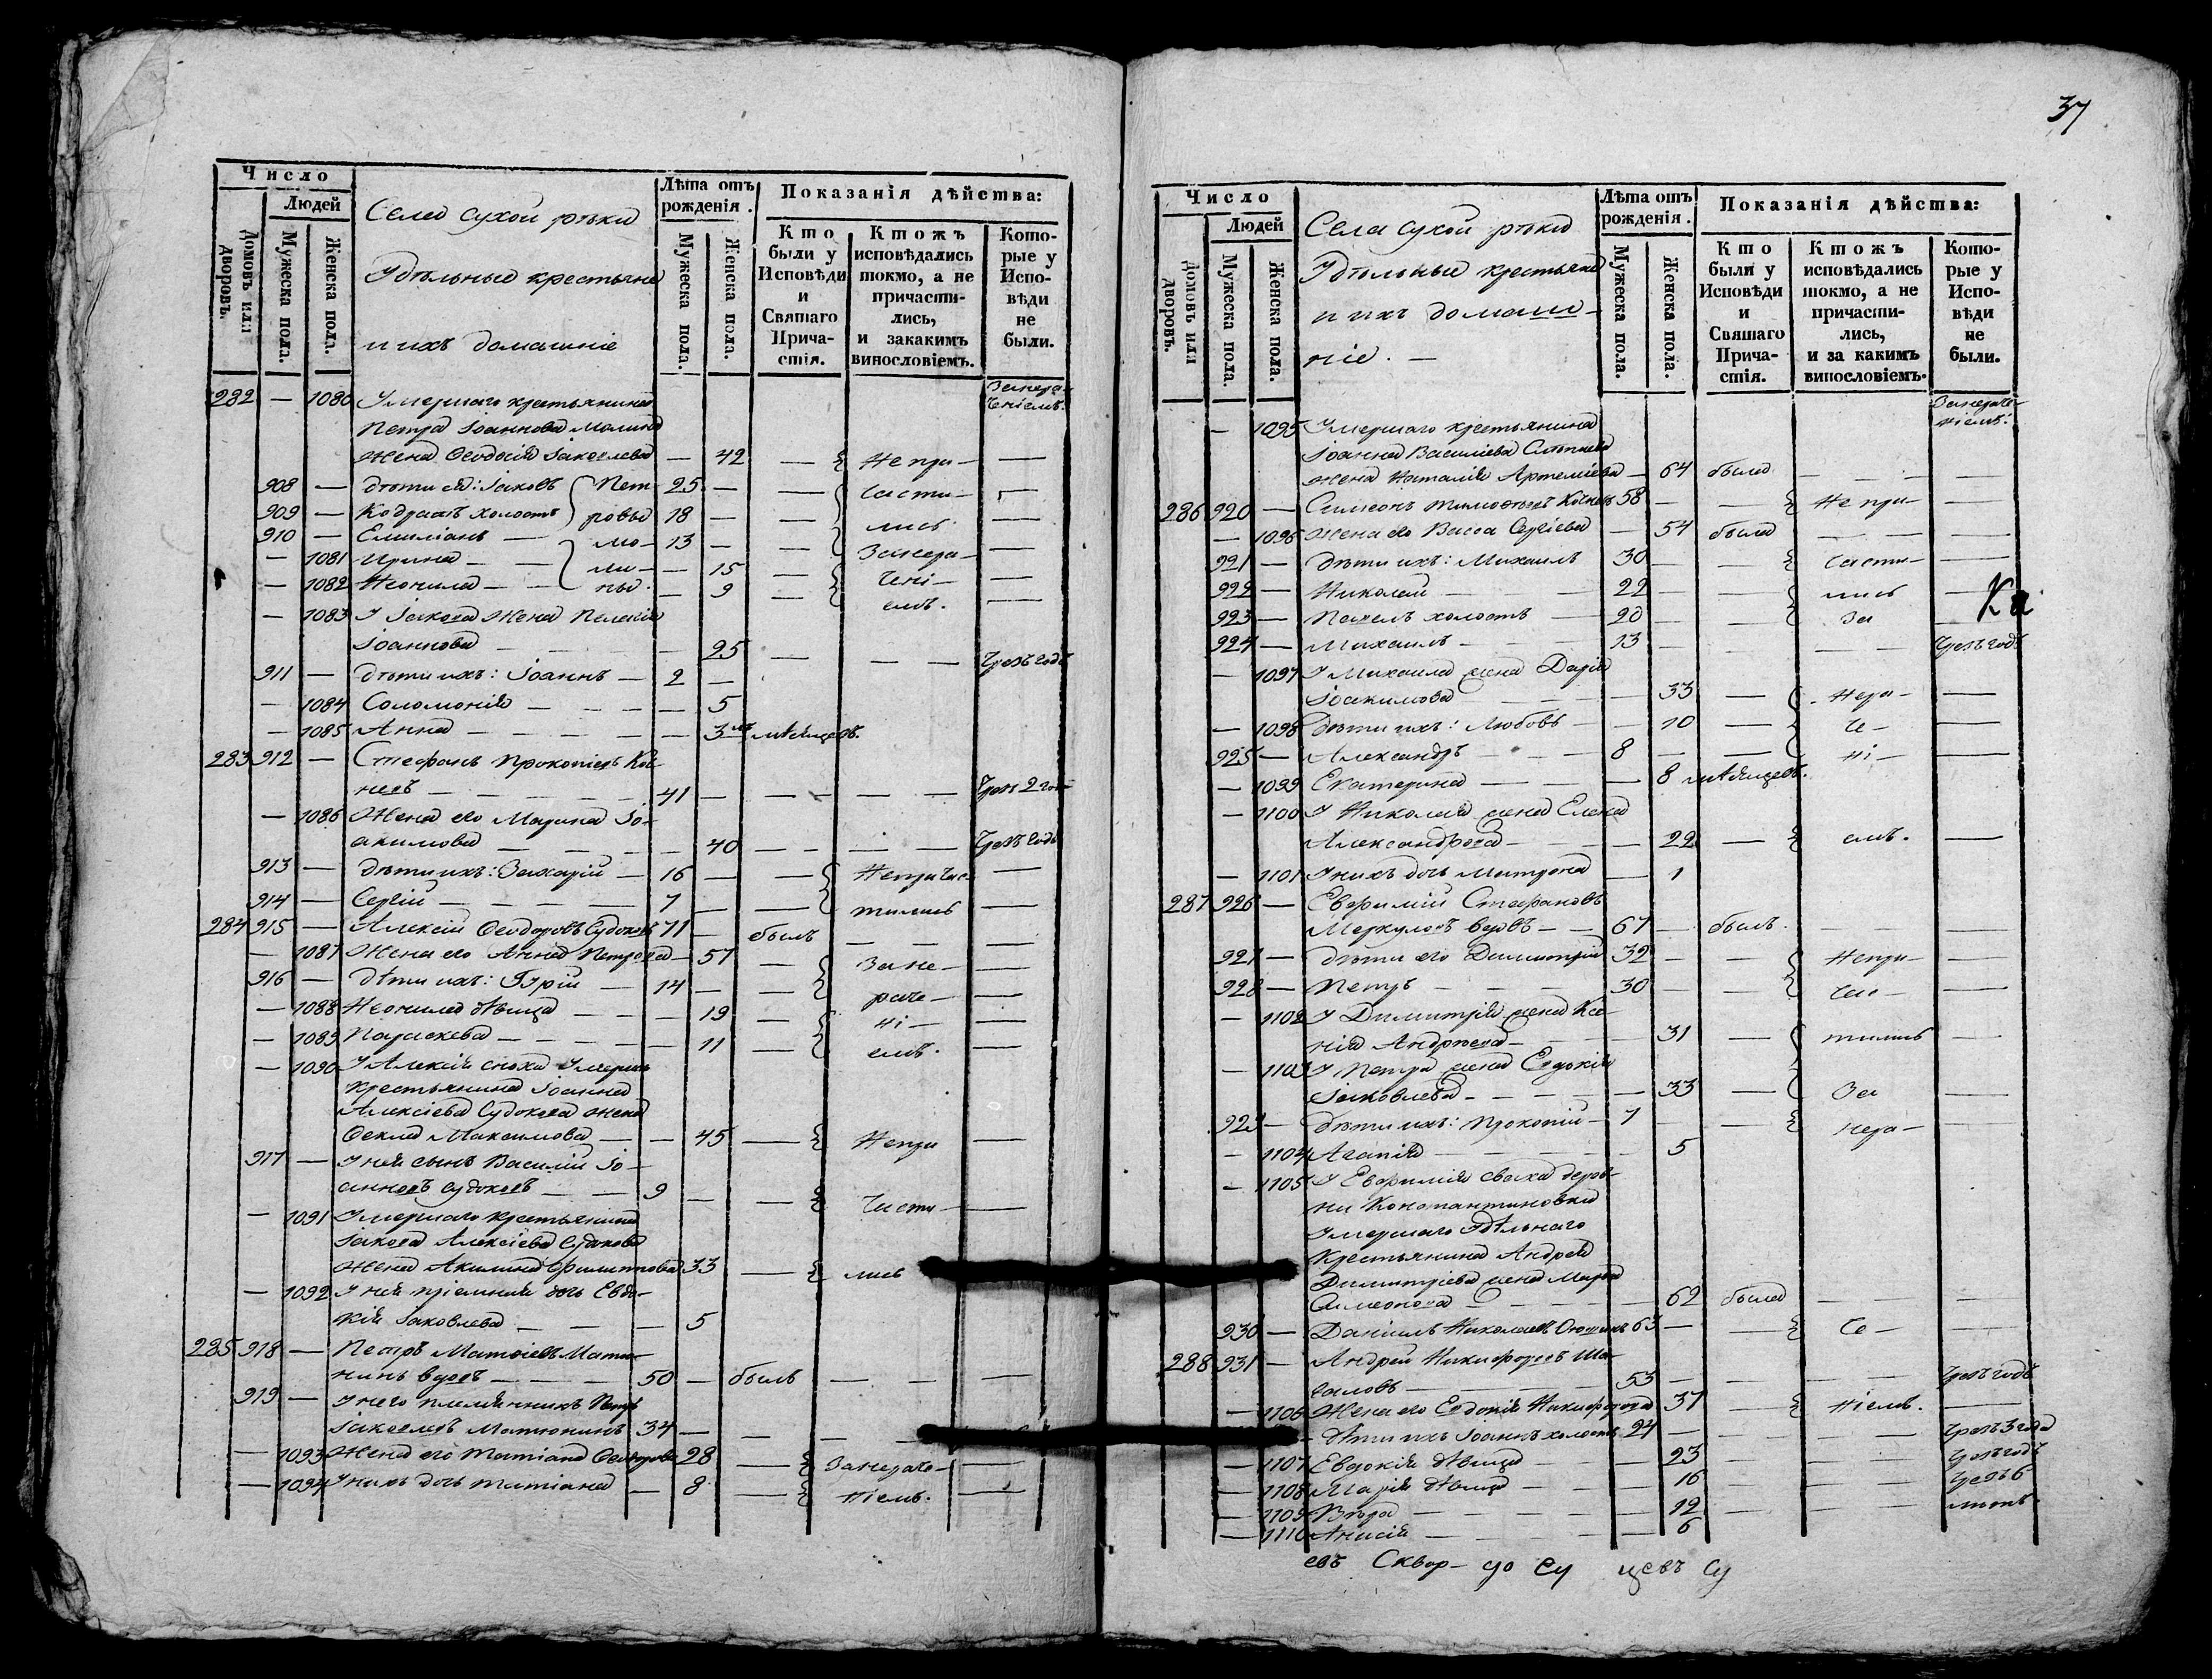 37
Число
Людей
Домовъ или дворовъ.
Мужеска пола.
Женска пола.
Села Сухой рѣки
Удѣльные крестьяне
и ихъ домашніе
Лѣта отъ рожденія.
Мужеска пола.
Женска пола.
Показанія дѣйства:
Кто были у Исповѣди и Святаго Прича-стія.
Ктожъ исповѣдались токмо, а не причасти-лись, и закакимъ винословіемъ.
Кото-рые у Испо-вѣди не были.
Занера-
ченіемъ.
282 — 1080 Умершаго крестьянина
Петра Іоаннова
жена Ѳеодосія Іаковлева — 42 — Непри- —
908 — дѣти ея: Іаковъ Пет- 25 — — части- —
909 — Кодратъ холостъ ровы 18 — — лись —
910 — Емиліанъ — 13 — — Занера- —
— 1081 Ирина — — 15 — чені- —
— 1082 Неонила — — 9 — емъ. —
— 1083 У Іакова жена Пелагія
Іоаннова — — 25 — — — Чрезъ годъ
911 — дѣти ихъ: Іоаннъ — 2 —
— 1084 Соломонія — — — 5
— 1085 Анна — — — 3 мѣсяцевъ.
283 912 — Стефанъ Прокопіевъ Коч-
невъ — — — 41 — — — — Чрез 2 год
— 1086 Жена его Марина Іо-
акимова — — — 40 — — — Чрезъ годъ
913 — дѣти ихъ: Захарій — 16 — — Непричас- —
914 — Сергій — — — 7 — — тились —
284 915 — Алексій Ѳеодоровъ Судоковъ 71 — былъ — — —
— 1087 Жена его Анна Петрова — 57 — Зане- —
916 — дѣти ихъ: Гурій — 14 — — раче- —
— 1088 Неонила дѣвица — — 19 — ні- —
— 1089 Параскева — — — 11 — емъ. —
— 1090 У Алексія сноха умерш
крестьянина Іоанна
Алексіева Судокова жена
Ѳекла Максимова — — 45 — Непри —
917 — У ней сынъ Василій Іо-
анновъ Судоковъ — — 9 — — части- —
— 1091 Умершаго крестьянина
Іакова Алексіева Судокова
жена Акилина Филиппова 33 — лись
— 1092 У ней пріемная дочь Евдо-
кія Іаковлева — — — 5
285 918 — Петръ Матѳіевъ Матю-
нинъ вдовъ — — — 50 — былъ — — —
919 — У него племянникъ Петръ
Іаковлевъ Матюнинъ 34 — — —
— 1093 Жена его Татіана Ѳеодорова 28 — Занераче- —
— 1094 У нихъ дочь Татіана — 8 — ніемъ. —
Число
Людей
Домовъ или дворовъ.
Мужеска пола.
Женска пола.
Села Сухой рѣки
Удѣльные крестьяне
и ихъ домаш-
ніе. —
Лѣта отъ рожденія.
Мужеска пола.
Женска пола.
Показанія дѣйства:
Кто были у Исповѣди и Святаго Прича-стія.
Ктожъ исповѣдались токмо, а не причасти-лись, и за какимъ винословіемъ.
Кото-рые у Испо-вѣди не были.
Занераче-
ніемъ:
— 1095 Умершаго крестьянина
Іоанна Василіева
жена Наталія Артеміева — 64 была — — —
286 920 — Симеонъ Тимоѳеевъ Кочневъ 58 — — Непри- —
— 1096 Жена его Васса Сергіева — 54 была — — —
921 — дѣти ихъ: Михаилъ 30 — — части- —
922 — Николай — — 22 — — лись —
923 — Павелъ холостъ — 20 — — За —
Ка
924 — Михаилъ — 13 — — — — Чрезъ годъ
— 1097 У Михаила жена Дарія
Іоакимова — — — 33 — Нера- —
— 1098 дѣти ихъ: Любовь — — 10 — че- —
925 — Александръ — — 8 — — ні- —
— 1099 Екатерина — — — 8 мѣсяцевъ.
— 1100 У Николая жена Елена
Александрова — — — 22 — емъ. —
— 1101 У нихъ дочь Матрона — 1
287 926 — Евфимій Стефановъ
Меркуловъ вдовъ — — 67 — былъ. — — —
927 — дѣти его Димитрій 32 — — Непри- —
928 — Петръ — — — 30 — — час- —
— 1102 У Димитрія жена Ксе-
нія Андреева — — — 31 — тились —
— 1103 У Петра жена Евдокія
Іаковлева — — — 33 — За —
929 — дѣти ихъ: Прокопій — 7 — — нера- —
— 1104 Агапія — — — 5
— 1105 У Евфимія сваха дерев-
ни Константиновки
умершаго удѣльнаго
крестьянина Андрея
Димитріева жена Марѳа
Симеонова — — — 62 была — — —
930 — Даніилъ Николаевъ 63 — — Че- —
288 931 — Андрей Никифоровъ Ша-
баловъ — — 53 — — — — Чрезъ годъ
— 1106 Жена его Евдокія Никифорова 37 — ніемъ. —
— дѣти ихъ Іоаннъ холостъ 24 — — — — Чрезъ 3 года
— 1107 Евдокія дѣвица — — 23 — — — Чрезъ годъ
— 1108 Марія дѣвица — — 16 — — — Чрезъ 6
— 1109 Вѣра — — — 12 — — — лѣтъ.
— 1110 Анисія — — — 6
евъ Сквор- до Су цевъ Су